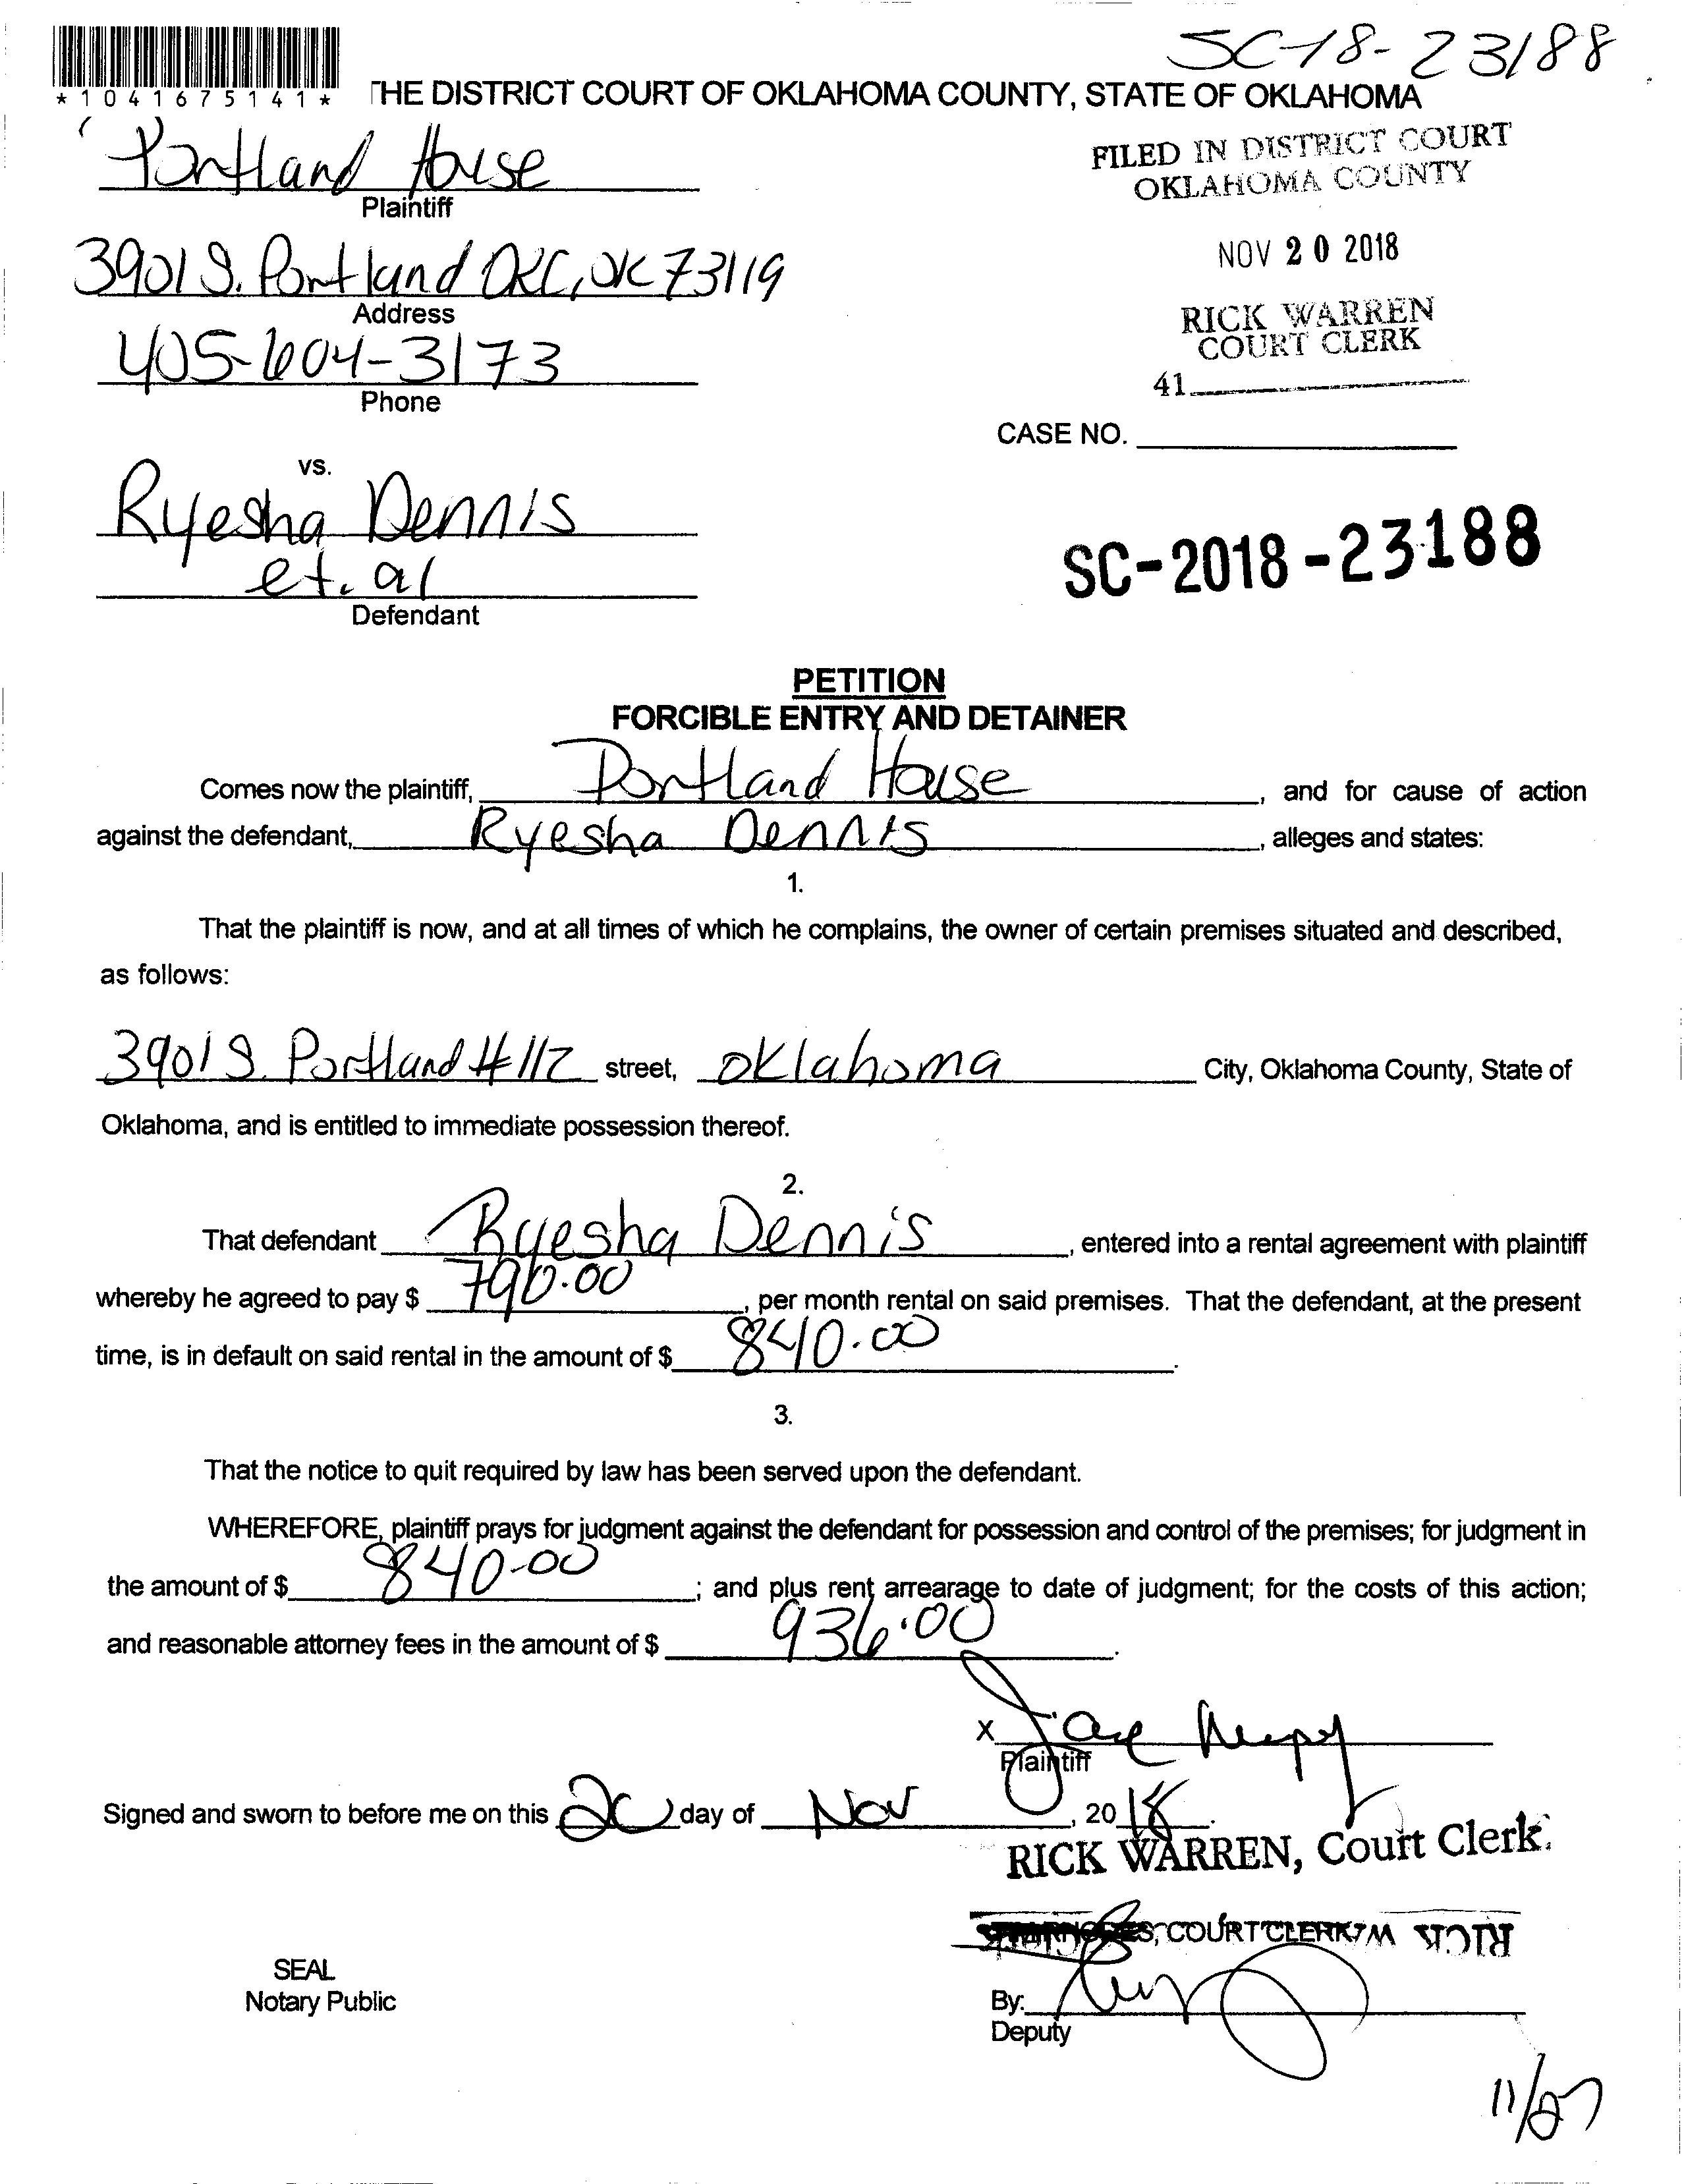 SC-18-23188
*1041675141*
THE DISTRICT COURT OF OKLAHOMA COUNTY, STATE OF OKLAHOMA
Portland House
Plaintiff
FILED IN DISTRICT COURT
OKLAHOMA COUNTY
3901 S. Portland OKC, OK 73119
Address
NOV 20 2018
405-604-3173
Phone
RICK WARREN
COURT CLERK
41
CASE NO.
vs.
Ryesha Dennis
et. al
Defendant
SC-2018-23188
PETITION
FORCIBLE ENTRY AND DETAINER
Comes now the plaintiff, Portland House, and for cause of action
against the defendant, Ryesha Dennis, alleges and states:
1.
That the plaintiff is now, and at all times of which he complains, the owner of certain premises situated and described,
as follows:
3901 S. Portland #112 street, Oklahoma City, Oklahoma County, State of
Oklahoma, and is entitled to immediate possession thereof.
2.
That defendant Ryesha Dennis, entered into a rental agreement with plaintiff
whereby he agreed to pay $ 790.00, per month rental on said premises. That the defendant, at the present
time, is in default on said rental in the amount of $ 840.00.
3.
That the notice to quit required by law has been served upon the defendant.
WHEREFORE, plaintiff prays for judgment against the defendant for possession and control of the premises; for judgment in
the amount of $ 840.00; and plus rent arrearage to date of judgment; for the costs of this action;
and reasonable attorney fees in the amount of $ 936.00.
X
Plaintiff
Signed and sworn to before me on this 20 day of Nov, 2018.
RICK WARREN, Court Clerk
COURT CLERK
RICK W
SEAL
Notary Public
By:
Deputy
11/27